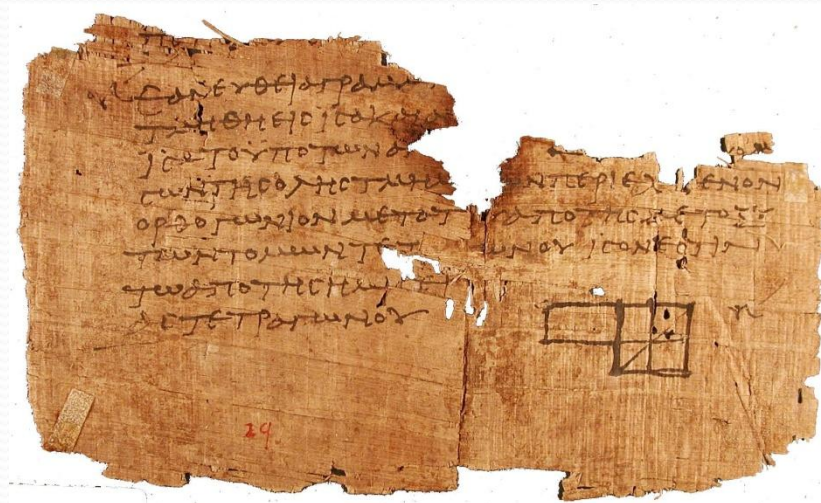 ΕΑΝΕΥΘΕΙΑΓΡΑΜΜ
ΤΜΗΘΗΕΙϹΙϹΑΚΑΙΑ
ΙϹΑΤΟΥΠΟΤΩΝΑ
ϹΩΝΤΗϹΟΛΗϹΤΜΗ ΩΝΠΕΡΙΕΧΟΜΕΝΟΝ
ΟΡΘΟΓΩΝΙΟΝΜΕΤΑΤ ΑΠΟΤΗϹΜΕΤΟΞΥ
ΤΩΝΤΟΜΩΝΤΕΤ ΩΝΟΥΙϹΟΝΕϹΤΙΝ
ΤΩΑΠΟΤΗϹΗΜΙϹ
ΑϹΤΕΤΡΑΓΩΝΟΥ
29